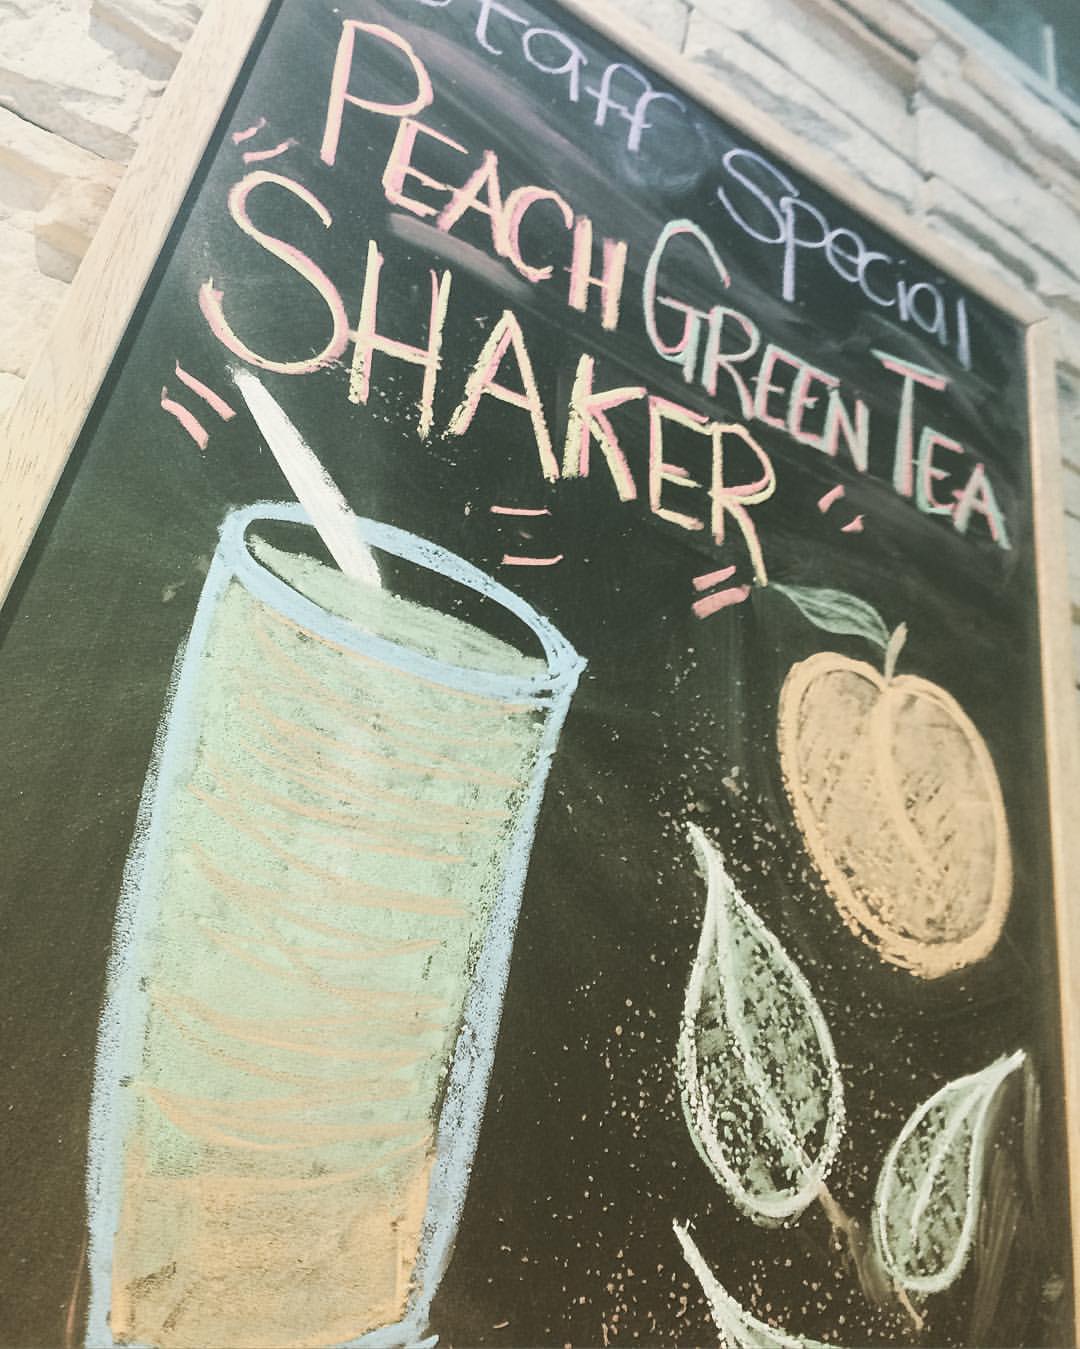 Staff Special
PEACH GREEN TEA
SHAKER